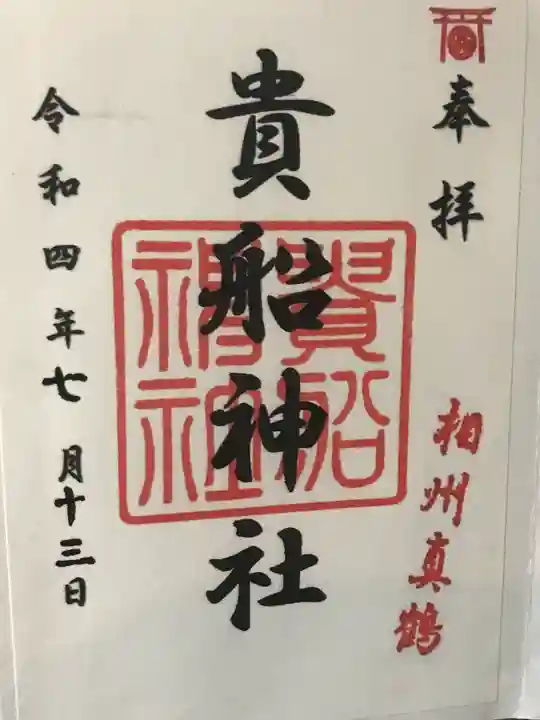 奉拝
相州真鶴
貴船神社
貴船
神社
令和四年七月十三日